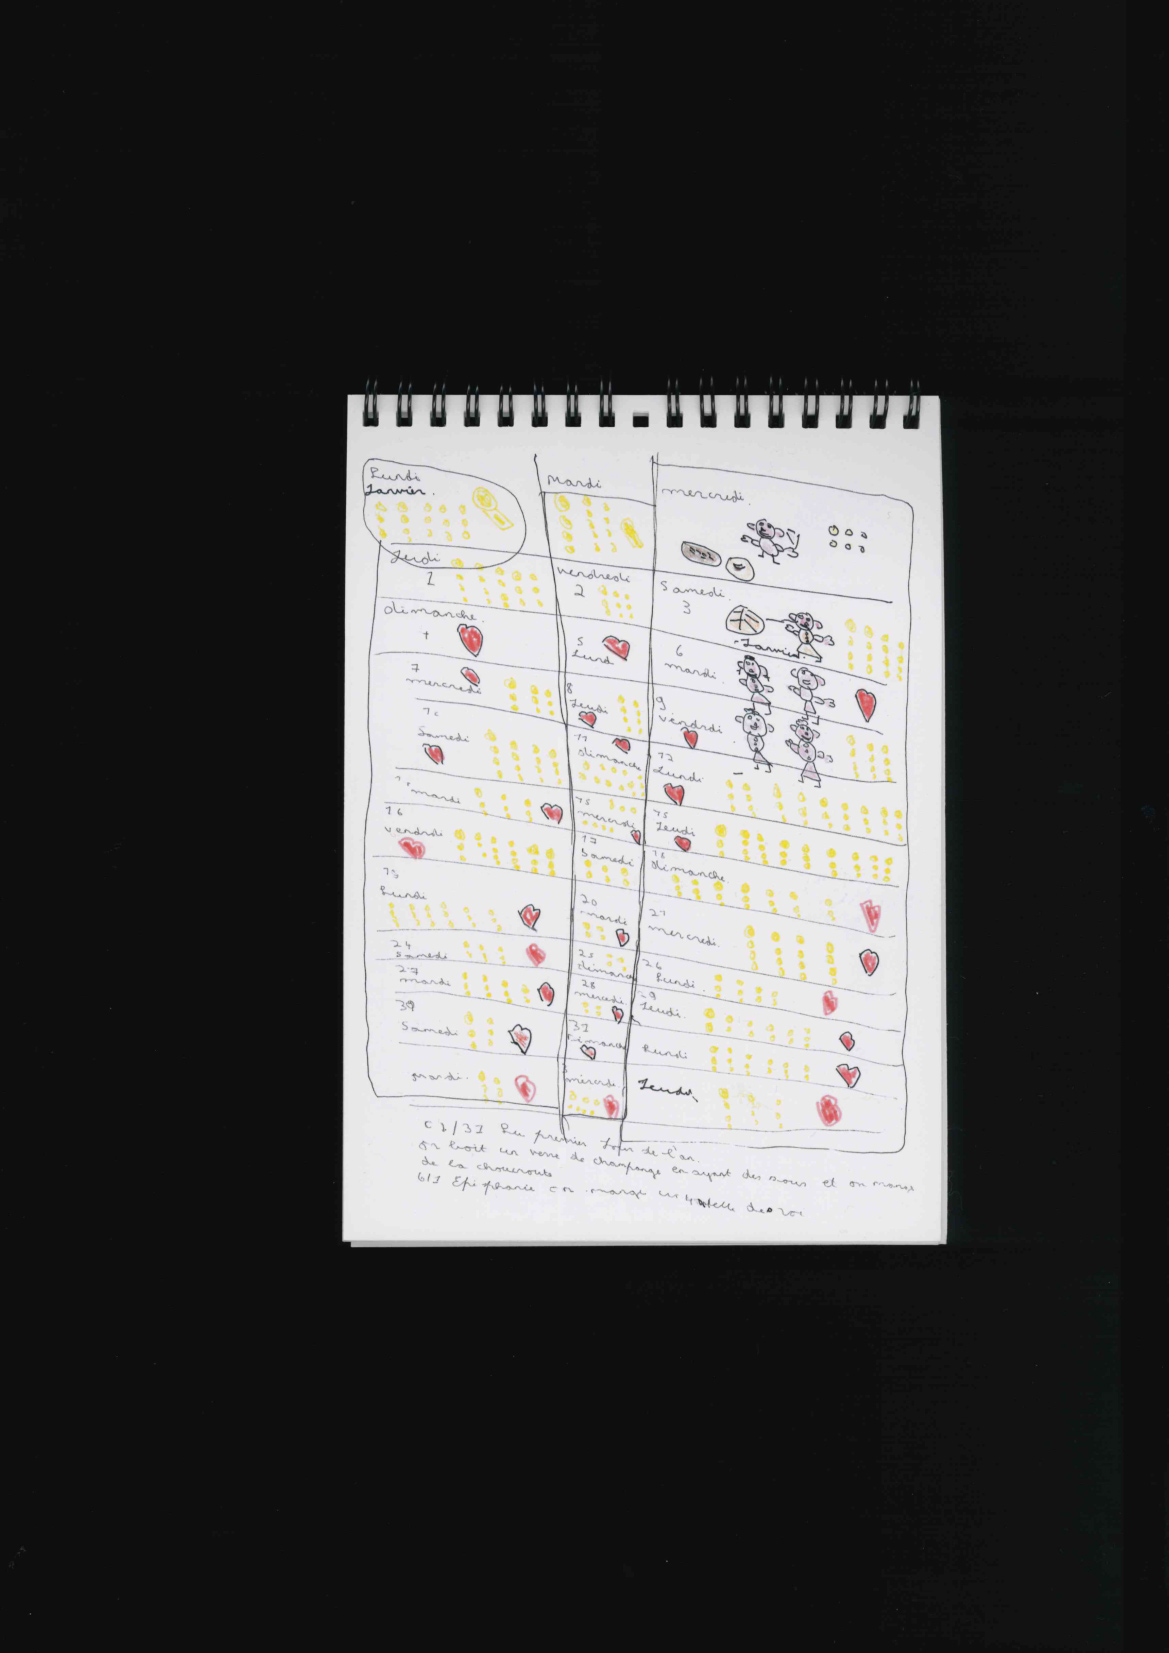 Lundi
Janvier.
Mardi
mercredi.
Jeudi
1
vendredi
2
Samedi.
3
dimanche.
5
Lundi
Janvier.
6
mardi.
7
mercredi
8
Jeudi
9
vendrdi
Samedi
11
dimanche
12
Lundi
mardi
15
mercredi
15
Jeudi
16
vendrdi
17
Samedi
18
dimanche.
19
Lundi
20
mardi
21
mercredi.
24
Samedi
25
dimanche
26
Lundi.
27
mardi
28
mercredi
29
Jeudi.
Samedi
31
Dimanche
Lundi
mardi.
mercrdi.
Jeudi
1/31 Le premier Jour de l'an.
on boit un verre de champange en ayant des et on mange
de la chouroute
6/1 Epiphanie on mange